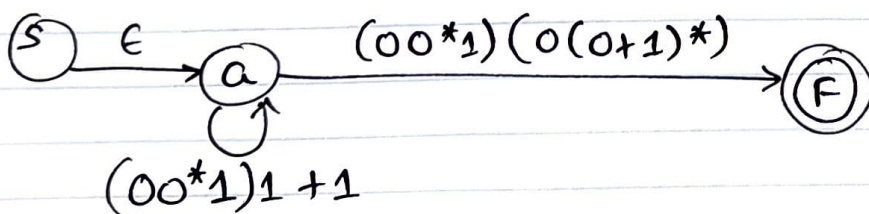 S ϵ (00*1)(0(0+1)*)
a F
(00*1)1+1